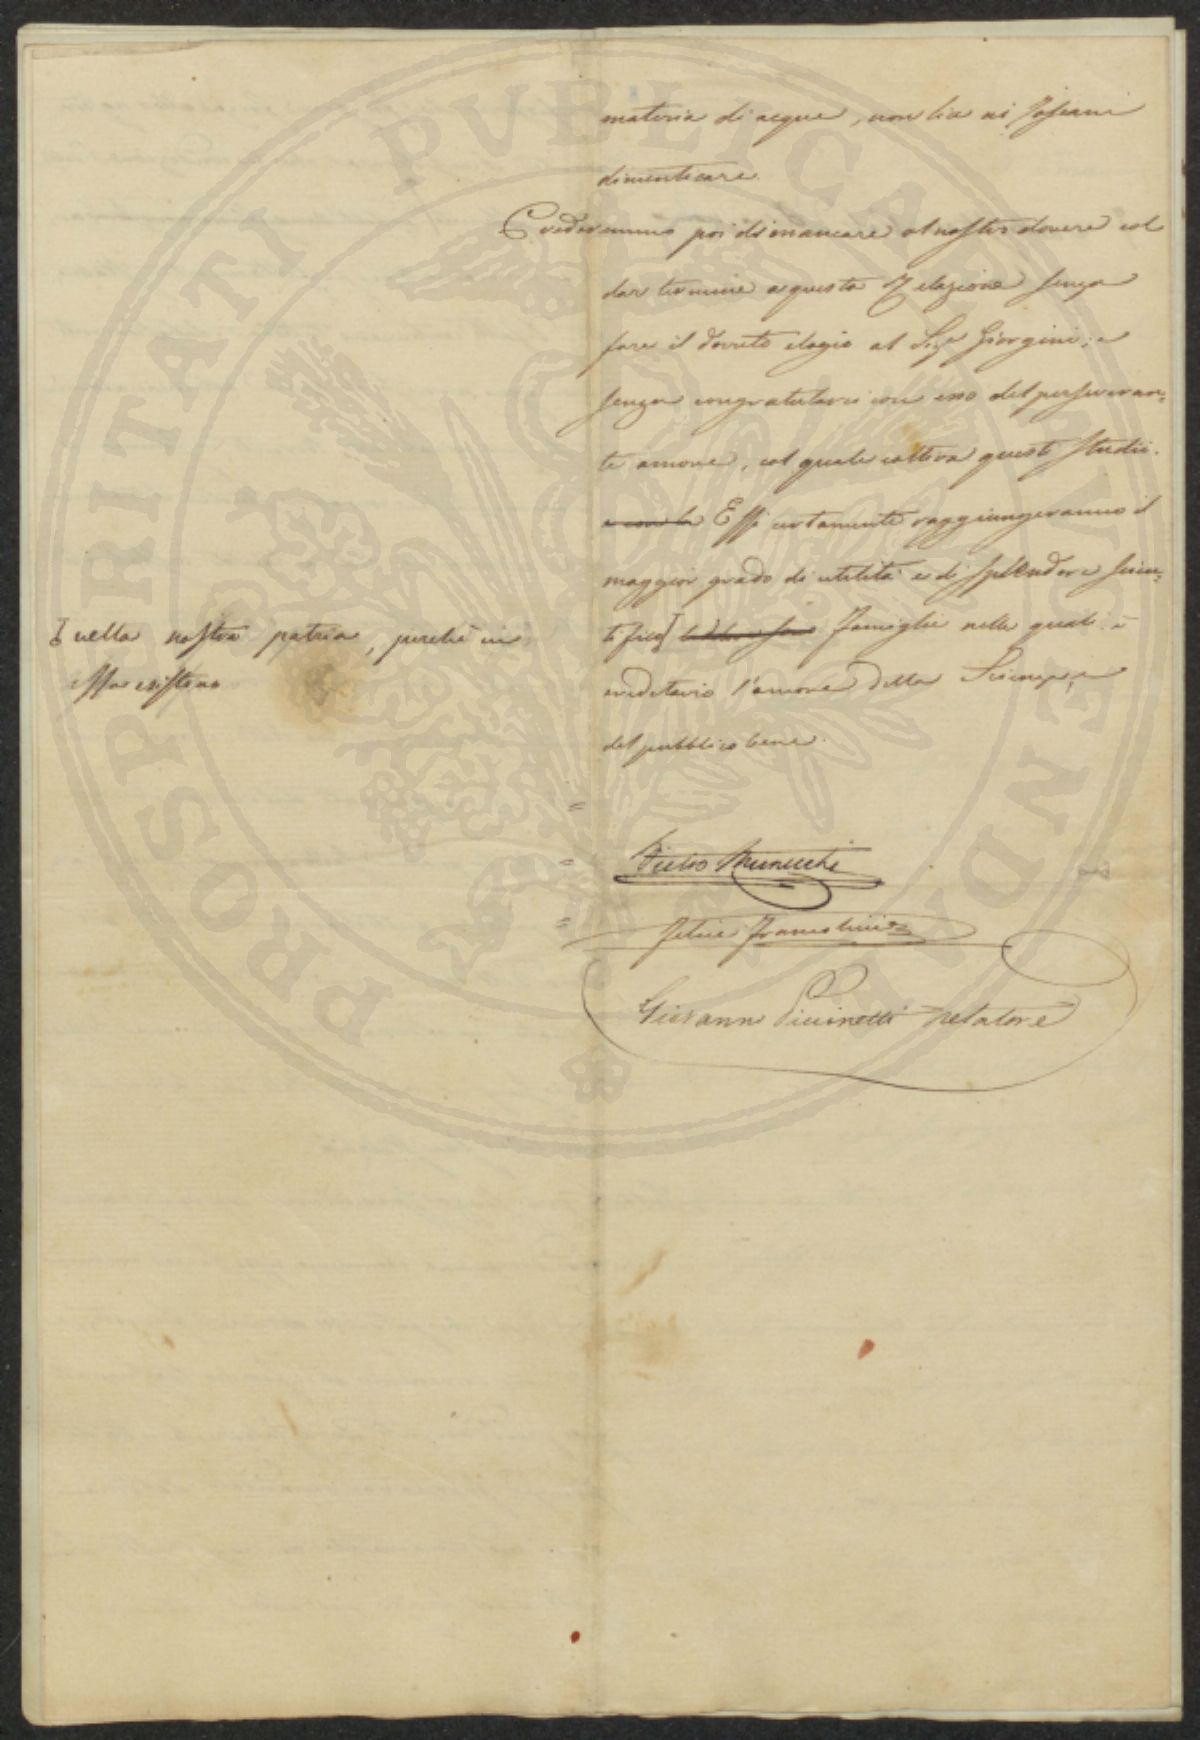 materia di acque, non lice ai Toscani
dimenticare.
Crederemmo poi di mancare al nostro dovere col
dar termine a questa Relazione senza
fare il dovuto elogio al Sig.e Giorgini; e
senza congratularci con esso del perseveran=
te amore, col quale coltiva questi studii.
e con la Essi certamente raggiungeranno il
maggior grado di utilità e di splendore scien=
tifico] Famiglie nelle quali è
ereditario l'amore della Scienza, e
del pubblico bene.
[ nella nostra patria, perchè in
essa esistono
=
= Pietro Municchi
= Felice Francolini
Giovanni Piccinetti relatore
PROSPERITATI PVBLICAE AVGENDAE